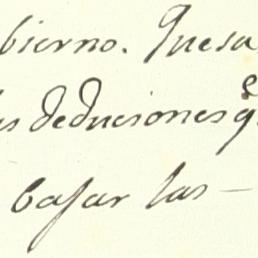 bierno. Quesa
as deduciones q.e
bajar las -